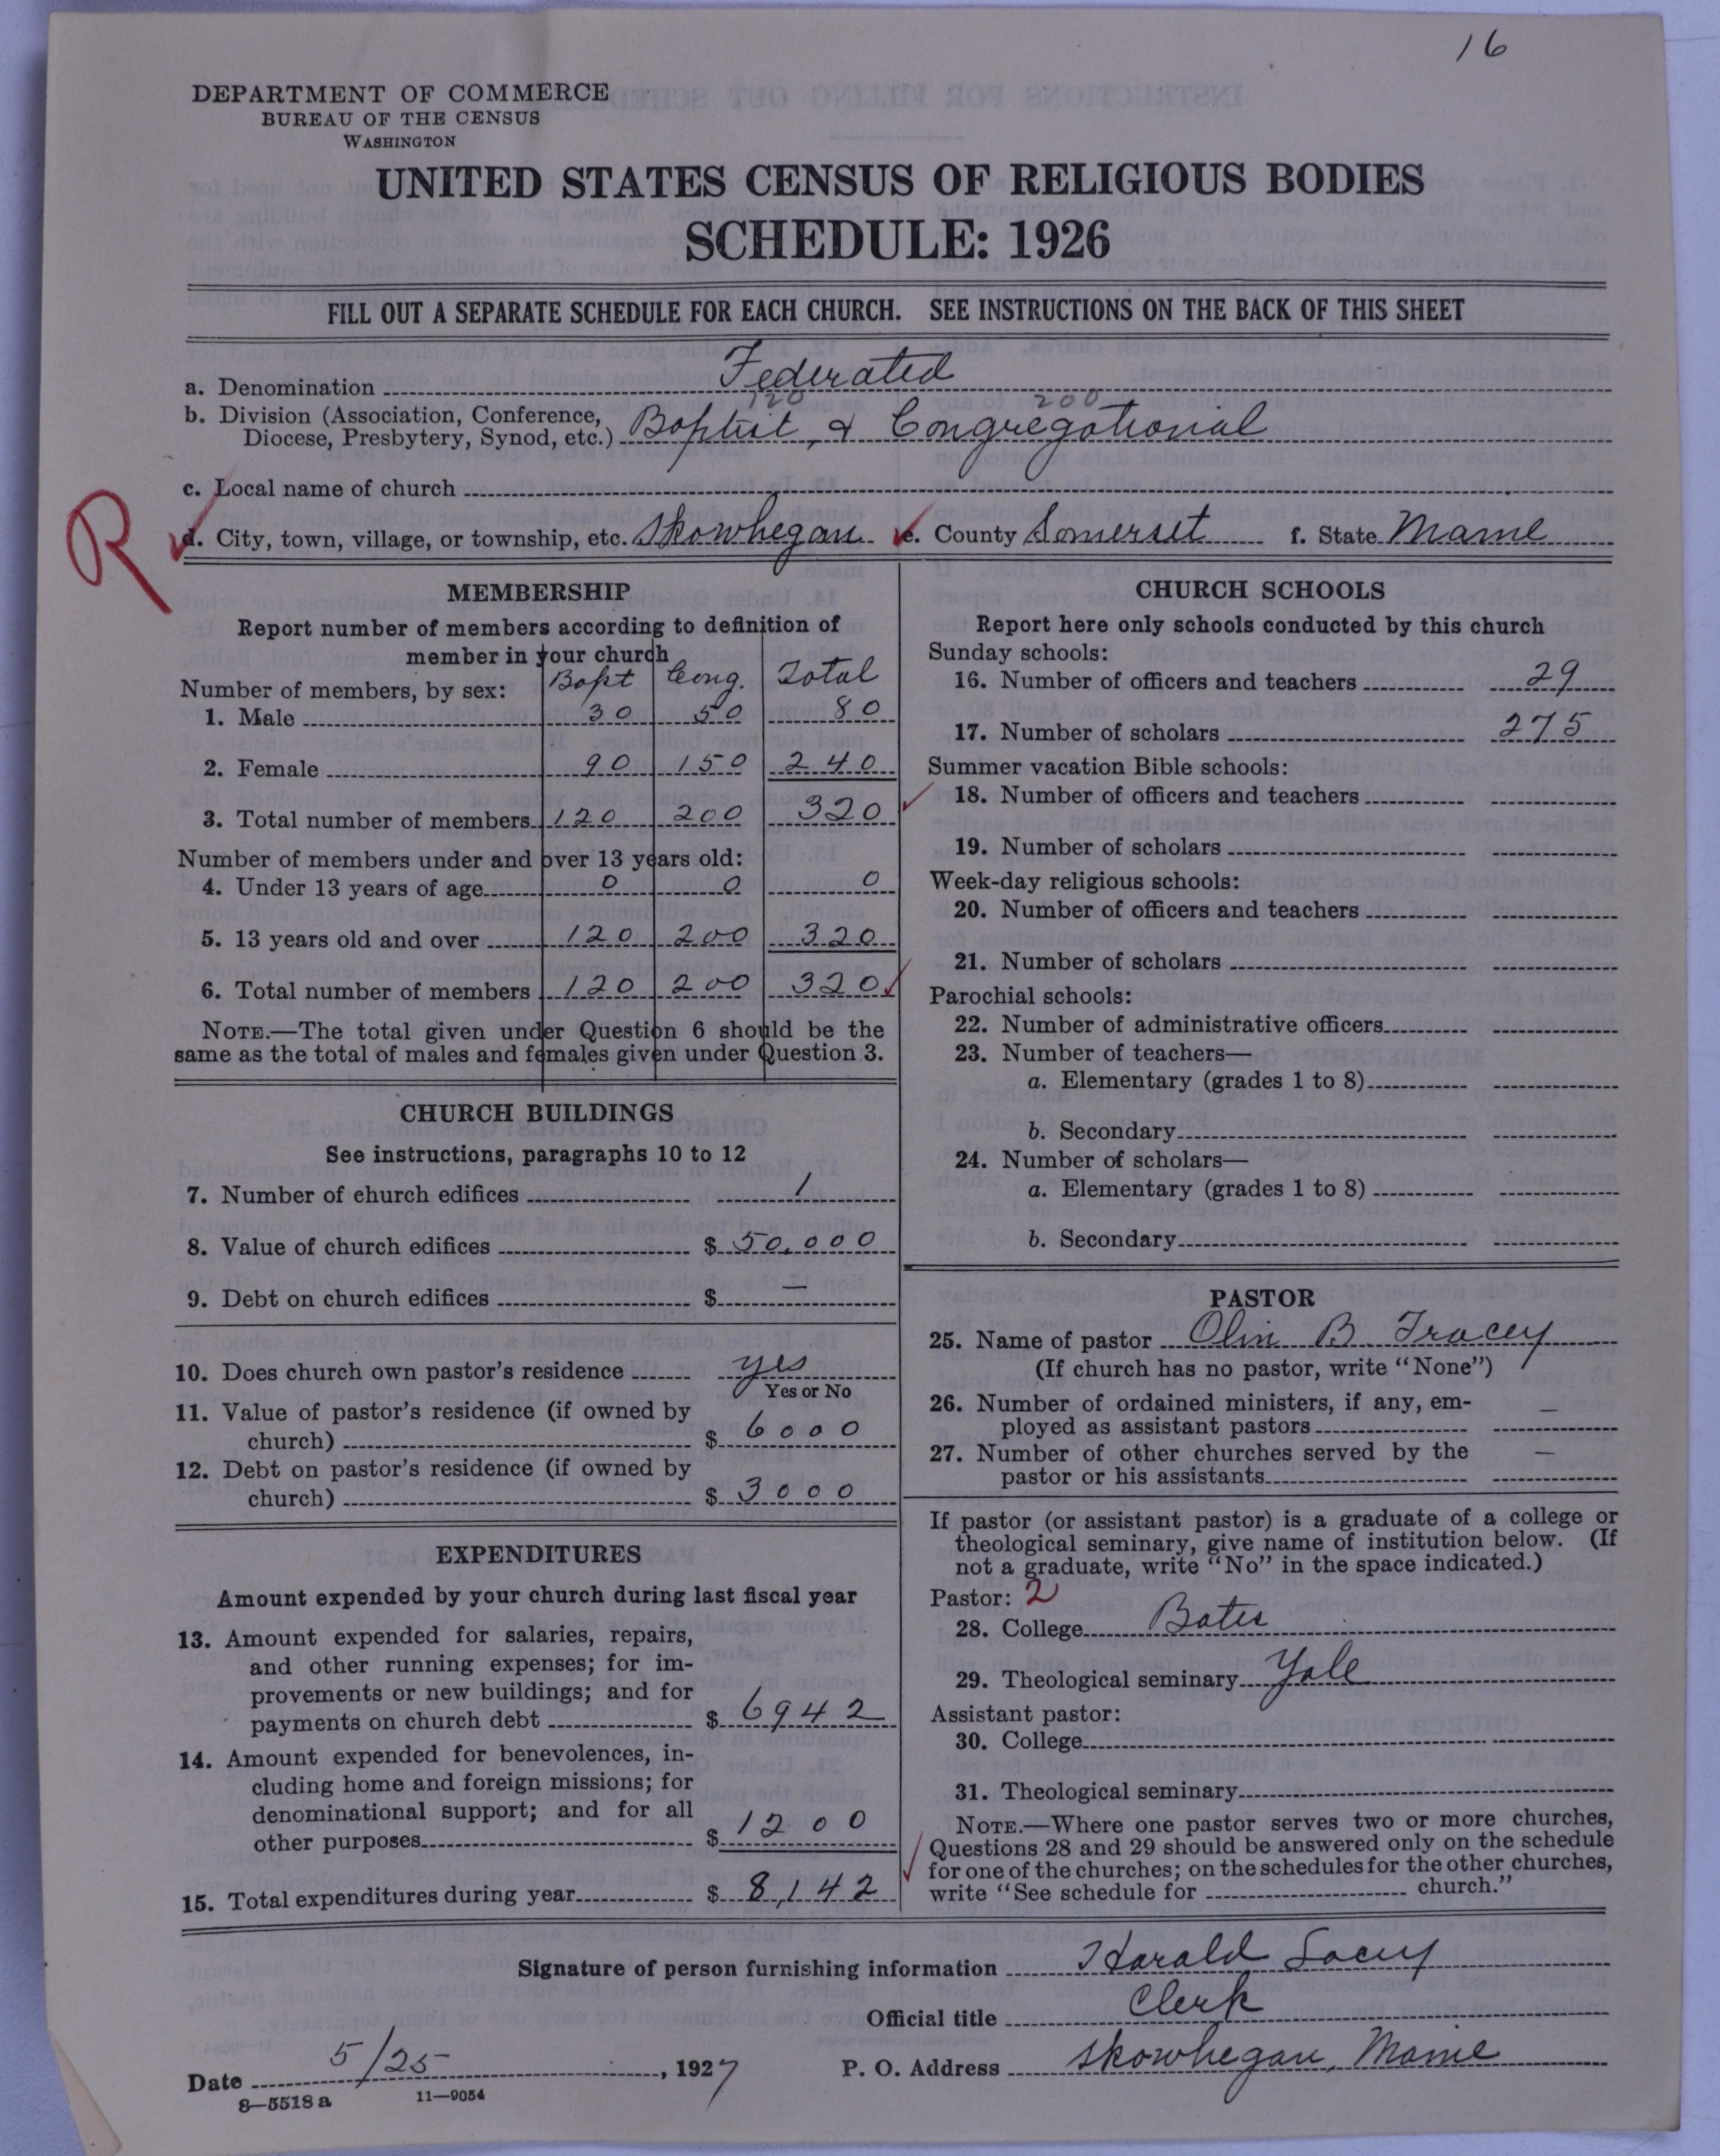 16
DEPARTMENT OF COMMERCE
BUREAU OF THE CENSUS
WASHINGTON
UNITED STATES CENSUS OF RELIGIOUS BODIES
SCHEDULE: 1926
FILL OUT A SEPARATE SCHEDULE FOR EACH CHURCH. SEE INSTRUCTIONS ON THE BACK OF THIS SHEET
a. Denomination Federated
120 200
b. Division (Association, Conference,
Diocese, Presbytery, Synod, etc.) Baptist, & Congregational
c. Local name of church
R
d. City, town, village, or township, etc. Skowhegan e. County Somerset f. State Maine
MEMBERSHIP
Report number of members according to definition of
member in your church
Number of members, by sex: Bapt Cong. Total
1. Male 30 50 80
2. Female 90 150 240
3. Total number of members 120 200 320
Number of members under and over 13 years old:
4. Under 13 years of age 0 0 0
5. 13 years old and over 120 200 320
6. Total number of members 120 200 320
NOTE.—The total given under Question 6 should be the
same as the total of males and females given under Question 3.
CHURCH BUILDINGS
See instructions, paragraphs 10 to 12
7. Number of church edifices 1
8. Value of church edifices $ 50,000
9. Debt on church edifices $ —
10. Does church own pastor's residence yes
Yes or No
11. Value of pastor's residence (if owned by
church) $ 6000
12. Debt on pastor's residence (if owned by
church) $ 3000
EXPENDITURES
Amount expended by your church during last fiscal year
13. Amount expended for salaries, repairs,
and other running expenses; for im-
provements or new buildings; and for
payments on church debt $ 6942
14. Amount expended for benevolences, in-
cluding home and foreign missions; for
denominational support; and for all
other purposes $ 1200
15. Total expenditures during year $ 8,142
CHURCH SCHOOLS
Report here only schools conducted by this church
Sunday schools:
16. Number of officers and teachers 29
17. Number of scholars 275
Summer vacation Bible schools:
18. Number of officers and teachers
19. Number of scholars
Week-day religious schools:
20. Number of officers and teachers
21. Number of scholars
Parochial schools:
22. Number of administrative officers
23. Number of teachers—
a. Elementary (grades 1 to 8)
b. Secondary
24. Number of scholars—
a. Elementary (grades 1 to 8)
b. Secondary
PASTOR
25. Name of pastor Olin B Tracey
(If church has no pastor, write "None")
26. Number of ordained ministers, if any, em-
ployed as assistant pastors —
27. Number of other churches served by the
pastor or his assistants —
If pastor (or assistant pastor) is a graduate of a college or
theological seminary, give name of institution below. (If
not a graduate, write "No" in the space indicated.)
Pastor: 2
28. College Bates
29. Theological seminary Yale
Assistant pastor:
30. College
31. Theological seminary
NOTE.—Where one pastor serves two or more churches,
Questions 28 and 29 should be answered only on the schedule
for one of the churches; on the schedules for the other churches,
write "See schedule for church."
Signature of person furnishing information Harald Lacey
Official title Clerk
Date 5/25, 1927 P. O. Address Skowhegan, Maine
8—5518a 11—9054